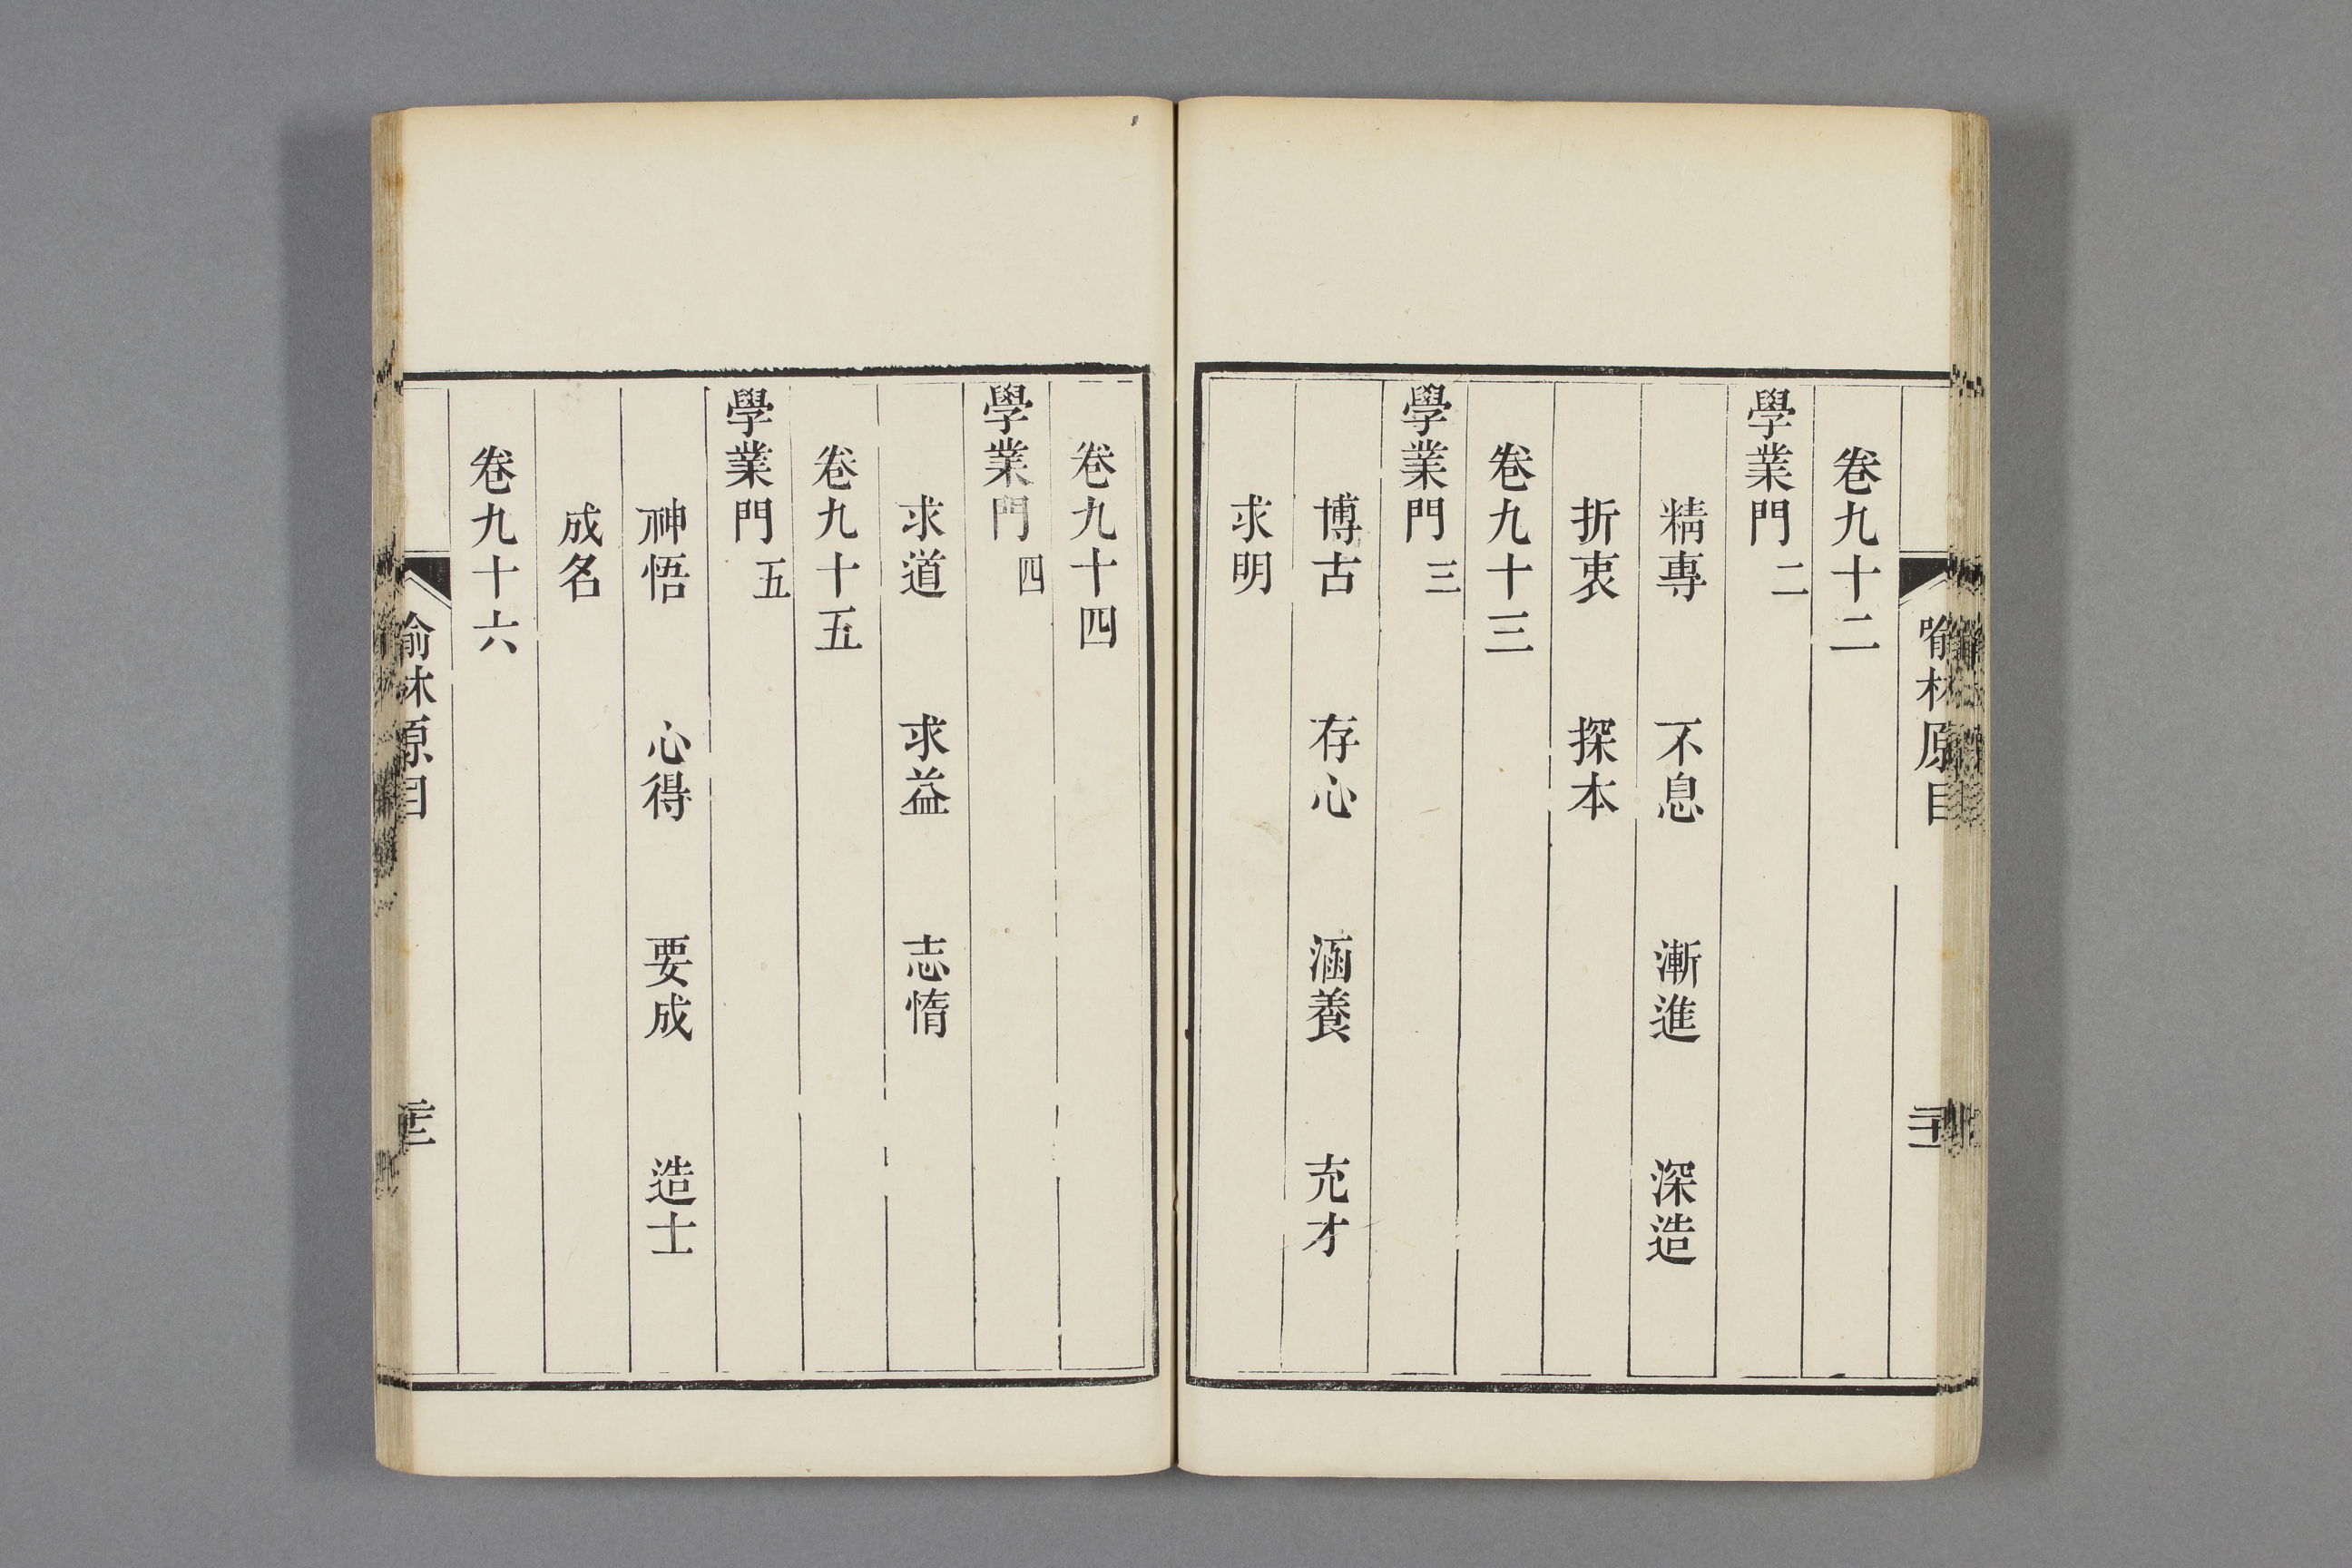 喻林原目
卷九十二
學業門二
精專　不息　漸進　深造
折衷　探本
卷九十三
學業門三
博古　存心　涵養　充才
求明
卷九十四
學業門四
求道　求益　志惰
卷九十五
學業門五
神悟　心得　要成　造士
成名
卷九十六
喻林原目